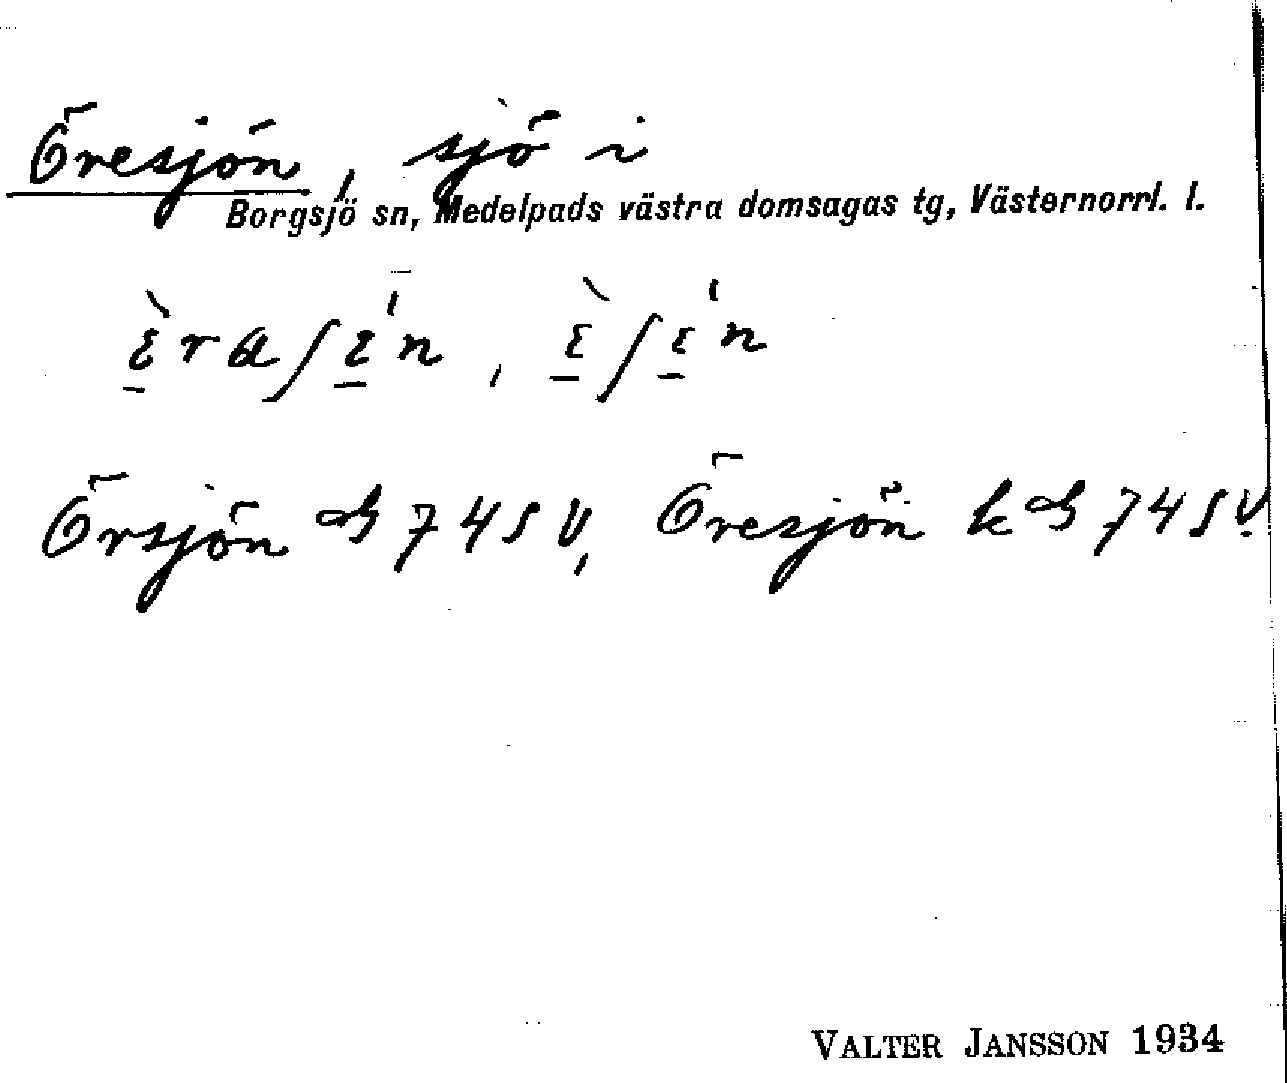 Öresjön, sjö i
Borgsjö sn, Medelpads västra domsagas tg, Västernorrl. l.
Örsjön 74 SV, Öresjön k 74 SV
VALTER JANSSON 1934